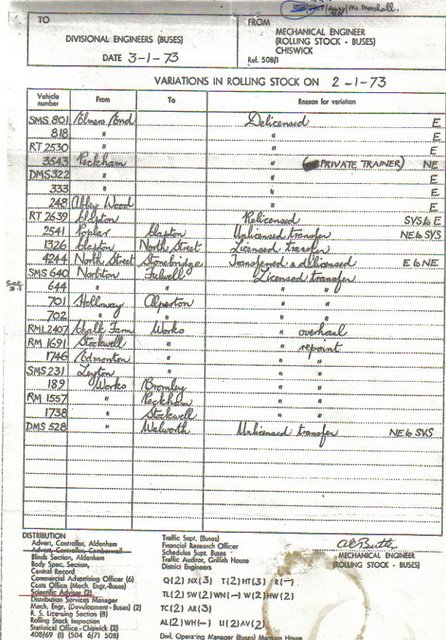 TO
DIVISIONAL ENGINEERS (BUSES)
DATE 3-1-73
FROM
MECHANICAL ENGINEER
(ROLLING STOCK - BUSES)
CHISWICK
Ref. 508/1
VARIATIONS IN ROLLING STOCK ON 2-1-73
Vehicle number From To Reason for variation
SMS 801 Elmers End Delicensed E
818 " " E
RT 2530 " " E
3543 Peckham " (PRIVATE TRAINER) NE
DMS 322 " " E
333 " " E
248 Abbey Wood " E
RT 2639 Clapton Relicensed SVS & E
2541 Poplar Clapton Unlicensed transfer NE & SVS
1326 Clapton North Street Licensed transfer
4244 North Street Stonebridge Transferred & delicensed E & NE
SMS 640 Norbiton Fulwell Licensed transfer
644 " " " "
701 Holloway Alperton " "
702 " " " "
RML 2407 Chalk Farm Works " " overhaul
RM 1691 Stockwell " " " repaint
1746 Edmonton " " "
SMS 231 Leyton " " "
189 Works Bromley " "
RM 1557 " Peckham " "
1738 " Stockwell " "
DMS 528 " Walworth Unlicensed transfer NE & SVS
DISTRIBUTION
Advert. Controller, Aldenham
Advert. Controller, Camberwell
Blinds Section, Aldenham
Body Spec. Section,
Central Record
Commercial Advertising Officer (6)
Costs Office (Mech. Engr.-Buses)
Scientific Adviser (2)
Distribution Services Manager
Mech. Engr. (Development - Buses) (2)
R. S. Licensing Section (8)
Rolling Stock Inspection
Statistical Office - Chiswick (2)
408/69 (1) (504 6/71 508)
Traffic Supt. (Buses)
Financial Research Officer
Schedules Supt. Buses
Traffic Auditor, Griffith House
District Engineers
Q(2) NX(3) T(2) HT(3) R(-)
TL(2) SW(2) WN(-) W(2) HW(2)
TC(2) AR(3)
AL(2) WH(-) U(2) AV(2)
Divl. Operating Manager (Buses) Mansion House
MECHANICAL ENGINEER
(ROLLING STOCK - BUSES)